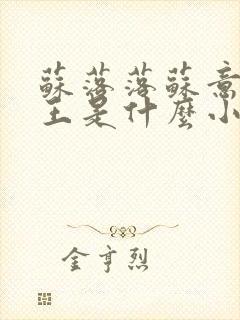 蘇落落蘇意
主是什麼小
金亨烈